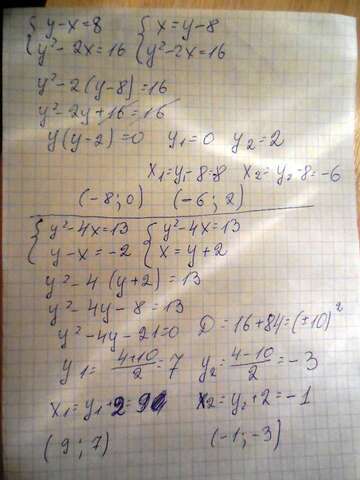 { y-x=8 { x=y-8
{ y²-2x=16 { y²-2x=16
y²-2(y-8)=16
y²-2y+16=16
y(y-2)=0 y₁=0 y₂=2
x₁=y₁-8=8 x₂=y₂-8=-6
(-8;0) (-6;2)
{ y²-4x=13 { y²-4x=13
{ y-x=-2 { x=y+2
y²-4(y+2)=13
y²-4y-8=13
y²-4y-21=0 D=16+84=(±10)²
y₁=(4+10)/2=7 y₂=(4-10)/2=-3
x₁=y₁+2=9 x₂=y₂+2=-1
(9;7) (-1;-3)